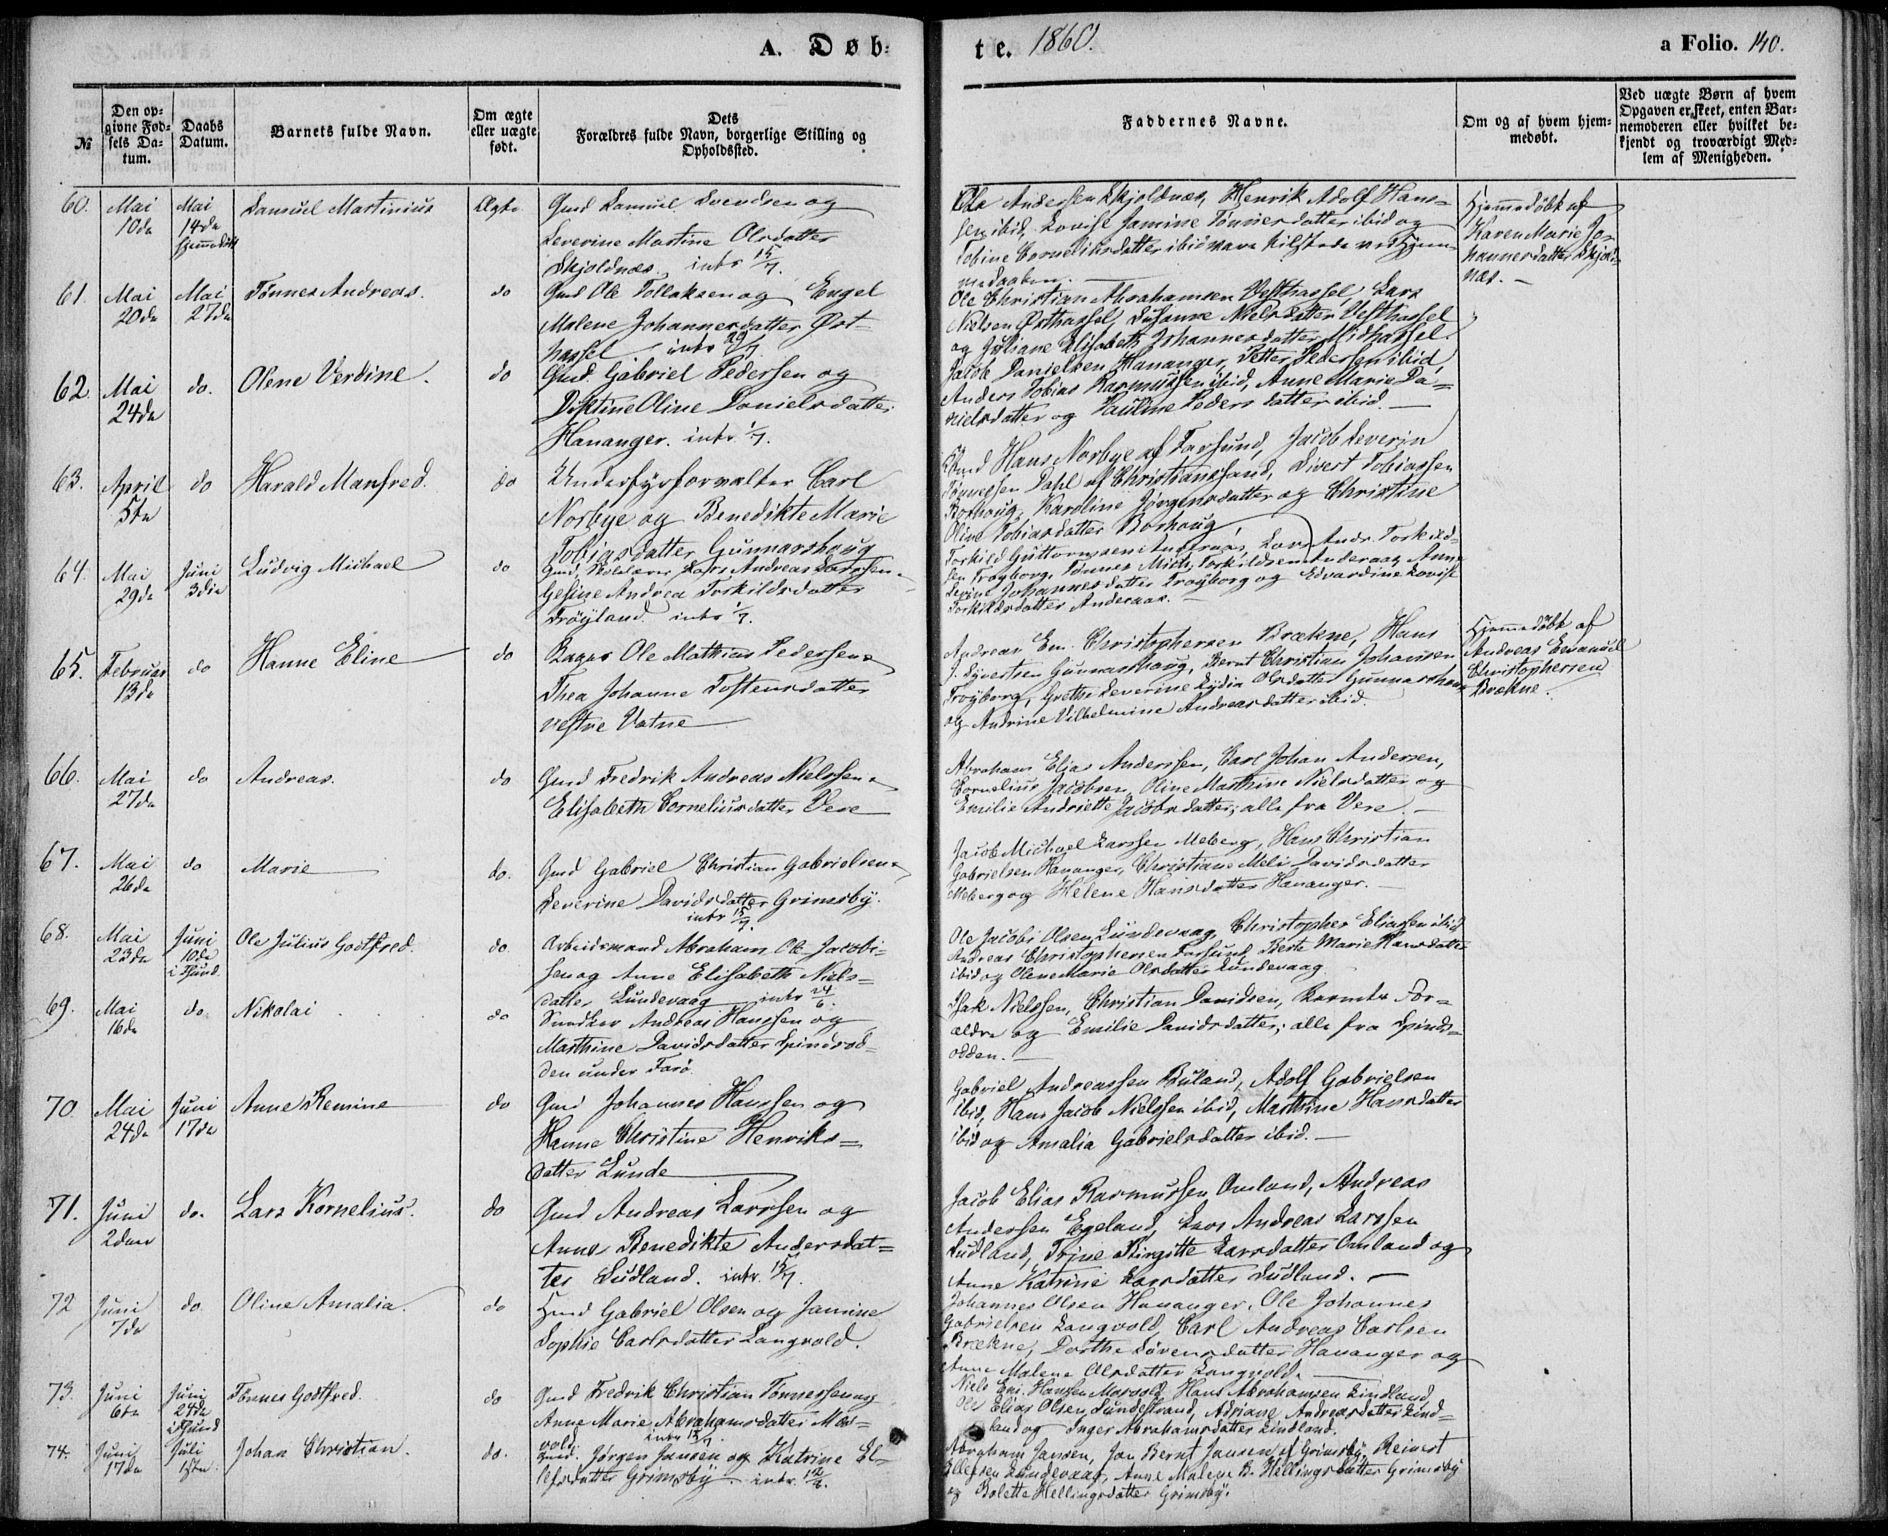 A. Døb-
te. 1860.
a Folio. 140.
№
Den op-
givne Fød-
sels Da-
tum.
Daabs
Datum.
Barnets fulde Navn.
Om ægte
eller uægte
født.
Dets
Forældres fulde Navn, borgerlige Stilling og
Opholdssted.
Faddernes Navne.
Om og af hvem hjem-
medøbt.
Ved uægte Børn af hvem
Opgaven er skeet, enten Bar-
nemoderen eller hvilket be-
kjendt og troværdigt Med-
lem af Menigheden.
60.
Mai
10de
Mai
14de
Hjemmedøbt
Samuel Martinius
Ægte
Gmd Samuel Svendsen og
Severine Martine Olsdatter
Skjoldnæs. intr 15/7.
Ole Andersen Skjoldnæs, Henrik Adolf Hans-
sen ibid, Lovise Jamine Tønnesdatter ibid og
Tobine Corneliusdatter ibid vare tilstede ved Hjem-
medaaben.
Hjemmedøbt af
Karen Marie Jo-
hannesdatter Skjold-
næs. —
61.
Mai
20de
Mai
27de
Tønnes Andreas.
do
Gmd Ole Tollaksen og Engel
Malene Johannesdatter Øst-
hassel intr 29/7.
Ole Christian Abrahamsen Vesthassel, Lars
Nielsen Østhassel, Susanne Nielsdatter Vesthassel
og Juliane Elisabeth Johannesdatter Midhassel.
62.
Mai
24de
do.
Olene Verdine.
do
Gmd. Gabriel Pedersen og
Distine Oline Danielsdatter
Hananger. intr 1/7.
Jacob Danielsen Hananger, Petter Pedersen ibid,
Anders Tobias Rasmussen ibid, Anne Marie Da-
nielsdatter og Pauline Pedersdatter ibid. —
63.
April
5te
do
Harald Manfred.
do
Underfyrforvalter Carl
Norbye og Benedikte Marie
Tobiasdatter Gunnarshoug
Hans Norbye af Farsund, Jacob Severin
Dahl af Christianssand, Sivert Tobiassen
Borhoug, Karoline Jørgensdatter og Christine
Oline Tobiasdatter Borhoug
64.
Mai
29de
Juni
3die
Ludvig Michael
do
Gmd Skolelærer Lars Andreas Larssen
Gesine Andrea Torkildsdatter
Frøyland intr 1/7.
Torkild Guttormsen Anderaas, Lars Andr. Torkild-
sen Frøyborg, Tønnes Mich. Torkildsen Anderaas, Anne
Sevine Johannesdatter Frøyborg og Edvardine Lovise
Torkildsdatter Anderaas. —
65.
Februar
13de
do
Hanne Eline
do
Bager Ole Mathias Pedersen
Thea Johanne Tostensdatter
vestre Vatne
Andreas Em. Christophersen Brækne, Hans
J. Syvertsen Gunnarshoug, Bernt Christian Johansen
Frøyborg, Grethe Severine Lydia Olsdatter Gunnarshoug
og Andrine Vilhelmine Andreasdatter ibid.
Hjemmedøbt af
Andreas Emanuel
Christophersen
Brækne.
66.
Mai
27de
do
Andreas.
do
Gmd Fredrik Andreas Nielssen
Elisabeth Corneliusdatter Vere
Abraham Elias Anderssen, Carl Johan Andersen,
Cornelius Jacobsen, Oline Marthine Nielsdatter og
Emilie Andriette Jacobsdatter; alle fra Vere. —
67.
Mai
26de
do
Marie
do.
Gmd Gabriel Christian Gabrielsen
Severine Davidsdatter Grimsby.
intr 15/7.
Jacob Michael Larssen Meberg, Hans Christian
Gabrielsen Hananger, Christiane Meli Davidsdatter
Meberg og Helene Hansdatter Hananger. —
68.
Mai
23de
Juni
10de
i Fsund.
Ole Julius Godtfred.
do
Arbeidsmand Abraham Ole Jacobi-
sen og Anne Elisabeth Niels-
datter Lundevaag intr 24/6.
Ole Jacobi Olsen Lundevaag, Christopher Eliassen ibid
Andreas Christophersen Farsund, Berte Marie Hansdatter
ibid og Olene Marie Olsdatter Lundevaag.
69.
Mai
16de
do.
Nikolai
do
Andreas Hanssen og
Marthine Davidsdatter Spindsod-
den under Farø
Isak Nielssen, Christian Davidsen, Barnets For-
ældre og Emilie Davidsdatter; alle fra Spinds-
odden. —
70.
Mai
24de
Juni
17de
Anne Remine
do
Gmd Johannes Hanssen og
Hanne Christine Henriks-
datter Lunde
Gabriel Andreassen Buland, Adolf Gabrielsen
ibid, Hans Jacob Nielssen ibid, Marthine Hansdatter
ibid og Amalia Gabrielsdatter ibid. —
71.
Juni
2den
do.
Lars Kornelius.
do
Gmd Andreas Larssen og
Anne Benedikte Andersdat-
ter Sudland. intr. 15/7.
Jacob Elias Rasmussen Omland, Andreas
Andersen Egeland, Lars Andreas Larssen
Sudland, Trine Birgitte Larsdatter Omland og
Anne Katrine Larsdatter Sudland. —
72
Juni
7de
do.
Oline Amalia.
do
Hmd Gabriel Olsen og Jamine
Sophie Carlsdatter Langvold.
Johannes Olsen Hananger, Ole Johannes
Gabrielsen Langvold, Carl Andreas Carlsen
Brækne, Dorthe Sørensdatter Hananger og
Anne Malene Olsdatter Langvold.
73.
Juni
6te
Juni
24de
i Fsund
Tønnes Godtfred.
do
Gmd Fredrik Christian Tønnessen og
Anne Marie Abrahamsdatter Mar-
vold intr 15/7.
Niels Em. Hanssen Marvold, Hans Abrahamsen Lindland,
Ole Elias Olsen Sundestrand, Adriane Andreasdatter Lind-
land og Inger Abrahamsdatter Lindland.
74.
Juni
17de
Juli
1ste
Johan Christian.
do.
Gmd. Jørgen Jansen og Katrine El-
lefsdatter Grimsby. intr.
Abraham Jansen, Jan Bernt Jansen af Grimsby, Reinert
Ellefsen Lundevaag, Anne Malene B. Hellingsdatter Grimsby
og Bolette Hellingsdatter Grimsby.